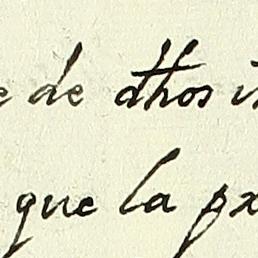 e de dhos i
que la px